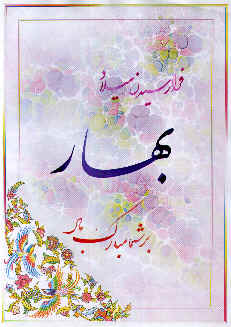 فرارسیدن میلاد
بهار
بر شما مبارک باد